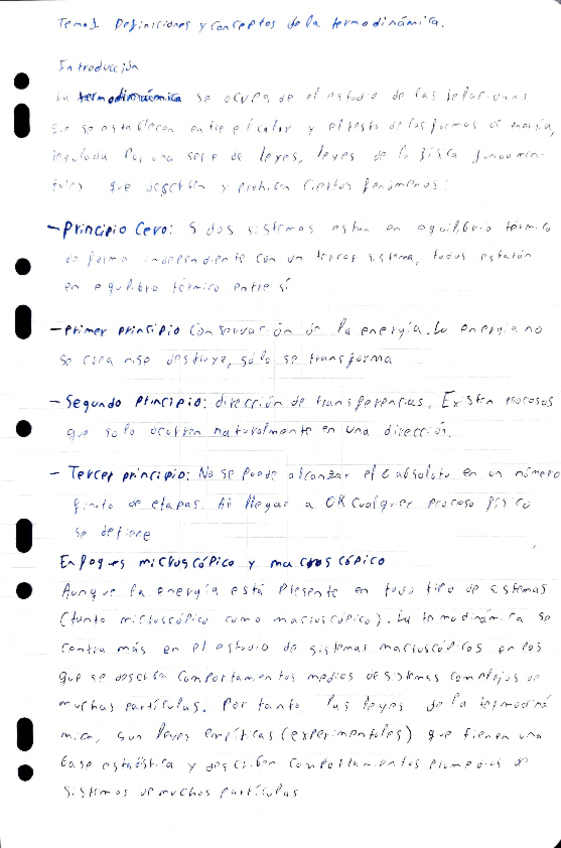 Tema 1 Definiciones y conceptos de la termodinámica.
Introducción
La termodinámica se ocupa de el estudio de las relaciones
que se establecen entre el calor y el resto de las formas de energía,
regulada por una serie de leyes, leyes de la física fundamen-
tales que describen y prohíben ciertos fenómenos:
- Principio Cero: Si dos sistemas están en equilibrio térmico
de forma independiente con un tercer sistema, todos estarán
en equilibro térmico entre sí
- Primer principio Conservación de la energía. La energía no
se crea ni se destruye, sólo se transforma
- Segundo Principio: dirección de transferencias. Existen procesos
que solo ocurren naturalmente en una dirección.
- Tercer principio: No se puede alcanzar el 0 absoluto en un número
finito de etapas. Al llegar a 0K cualquier proceso físico
se detiene
Enfoques microscópico y macroscópico
Aunque la energía está presente en todo tipo de sistemas
(tanto microscópico como macroscópico). La termodinámica se
centra más en el estudio de sistemas macroscópicos en los
que se describen comportamientos medios de sistemas complejos de
muchas partículas. Por tanto las leyes de la termodiná
mica, son leyes empíricas (experimentales) que tienen una
base estadística y describen comportamientos promedios de
sistemas de muchas partículas